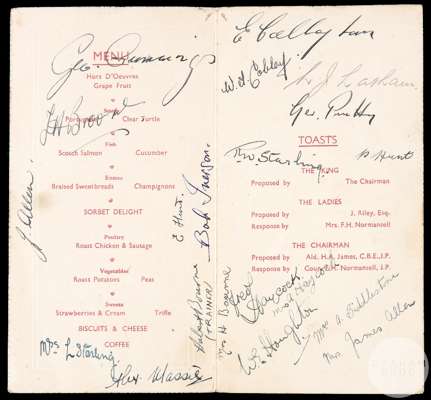 MENU
Geo. Cummings
Hors D'Oeuvres
Grape Fruit
Soup
Clear Turtle
Fish
Scotch Salmon Cucumber
Entree
Braised Sweetbreads Champignons
SORBET DELIGHT
Poultry
Roast Chicken & Sausage
Vegetables
Roast Potatoes Peas
Sweets
Strawberries & Cream Trifle
BISCUITS & CHEESE
COFFEE
J Allen.
Mrs L Starling.
Alex. Massie
E Hunt.
Bob Iverson.
Hubert Bourne
(TRAINER)
E Callaghan
TOASTS
R. W. Starling.
P. Hunt
THE KING
Proposed by The Chairman
THE LADIES
Proposed by J. Riley, Esq.
Response by Mrs. F.H. Normansell
THE CHAIRMAN
Proposed by Ald. H.A. James, C.B.E., J.P.
Response by Coun. F.H. Normansell, J.P.
Mrs H Bourne
Haycock.
Mrs Haycock
W E Houghton
Mrs James Allen